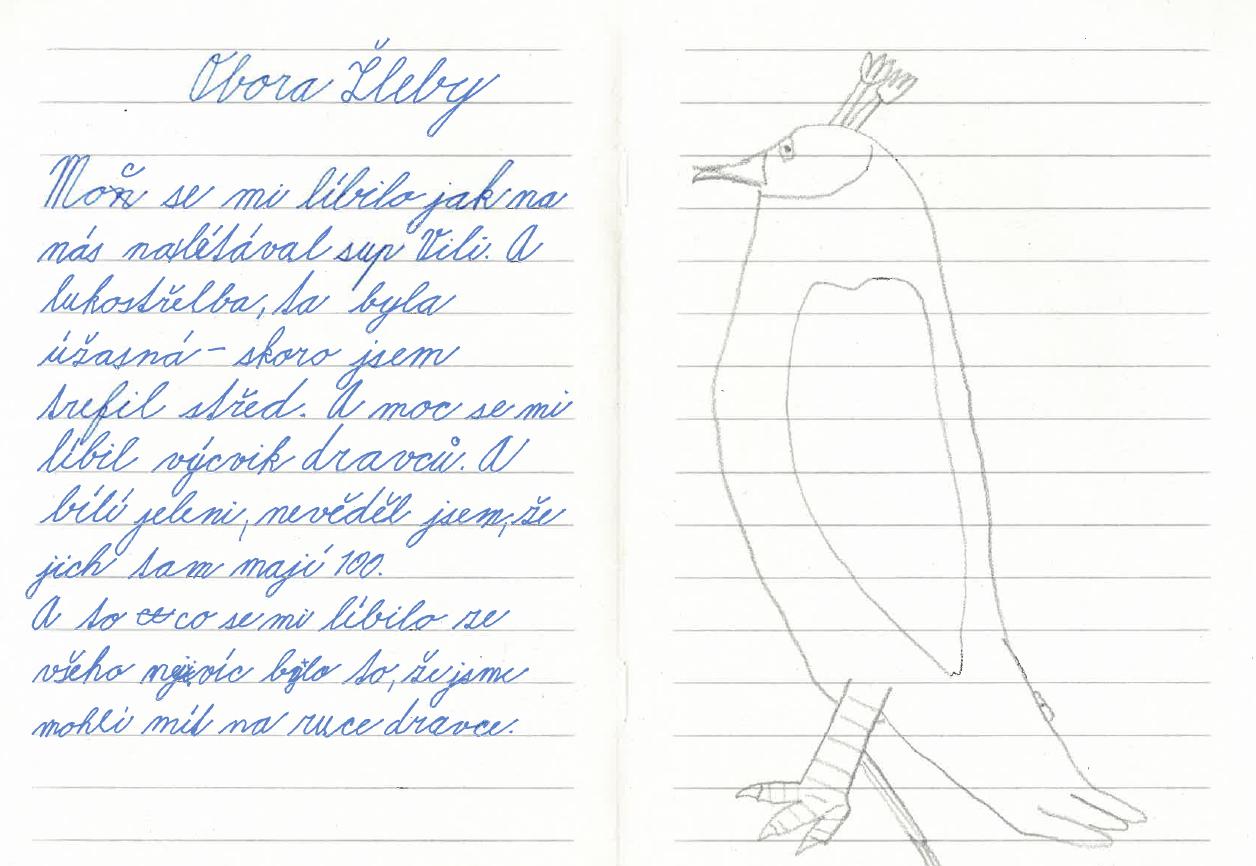 Obora Žleby
Moc se mi líbilo jak na
nás nalétával sup Vili. A
lukostřelba, ta byla
úžasná - skoro jsem
trefil střed. A moc se mi
líbil výcvik dravců. A
bílí jeleni, nevěděl jsem, že
jich tam mají 100.
A to co se mi líbilo ze
všeho nejvíc bylo to, že jsme
mohli mít na ruce dravce.